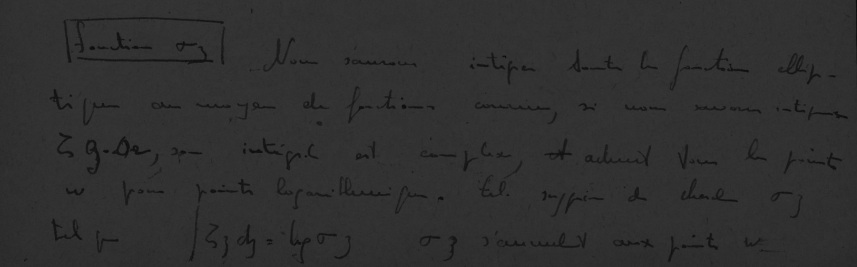 Fonction σz Nous saurons intégrer toutes les fonctions ellip-
tiques au moyen de fonctions connues, si nous savons intégrer
ζ, son intégrale est complexe, et admet tous les points
w pour points logarithmiques. Il suffira de chercher σz
tel que ∫ζz dz = log σz σz s'annulant aux points w